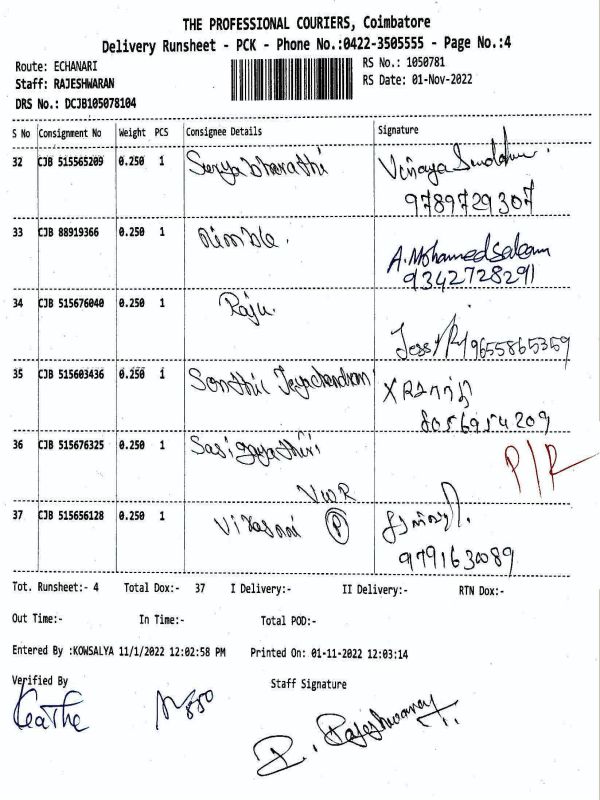 THE PROFESSIONAL COURIERS, Coimbatore
Delivery Runsheet - PCK - Phone No.:0422-3505555 - Page No.:4
Route: ECHANARI
RS No.: 1050781
Staff: RAJESHWARAN
RS Date: 01-Nov-2022
DRS No.: DCJB105078104
S No Consignment No Weight PCS Consignee Details Signature
32 CJB 515565209 0.250 1 Surya bharathi
9789729307
33 CJB 88919366 0.250 1 Nimble. A. Mohamedsaleem
9342728291
34 CJB 515676040 0.250 1 Raju.
9655865359
35 CJB 515603436 0.250 1 Senthil Jeyachandran
8056954209
36 CJB 515676325 0.250 1 Sasigayathiri P/R
VWR
37 CJB 515656128 0.250 1 P
9791630089
Tot. Runsheet:- 4 Total Dox:- 37 I Delivery:- II Delivery:- RTN Dox:-
Out Time:- In Time:- Total POD:-
Entered By :KOWSALYA 11/1/2022 12:02:58 PM Printed On: 01-11-2022 12:03:14
Verified By Staff Signature
R. Rajeshwaran